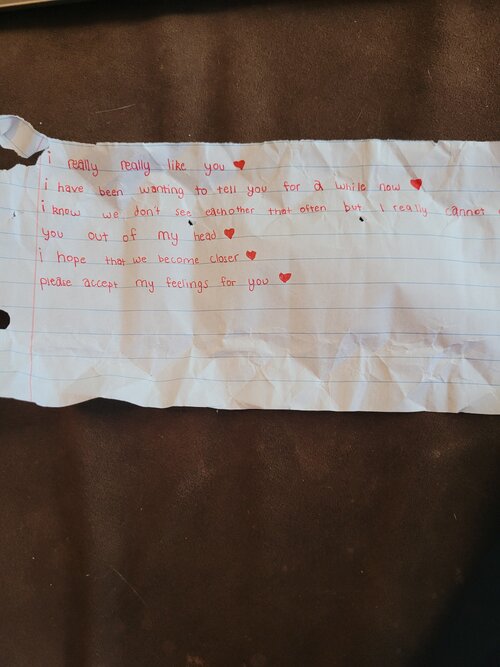 i really really like you ♥
i have been wanting to tell you for a while now ♥
i know we don't see eachother that often but I really cannot
you out of my head ♥
i hope that we become closer ♥
please accept my feelings for you ♥